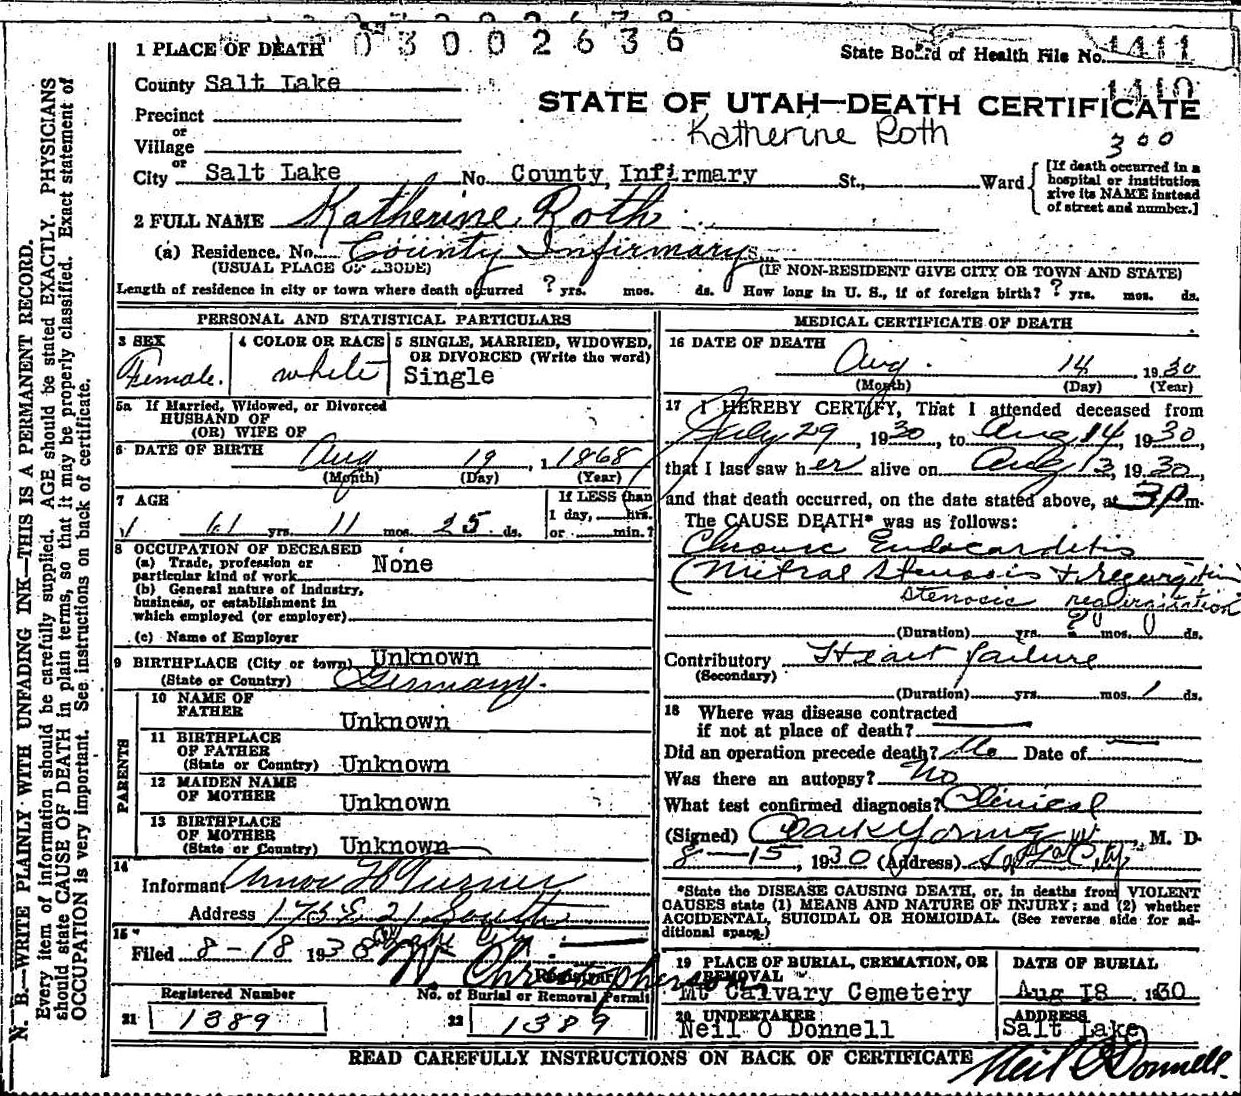 0 3 0 0 2 6 3 6
1 PLACE OF DEATH
State Board of Health File No. 1411
1410
County Salt Lake
STATE OF UTAH—DEATH CERTIFICATE
Precinct
Katherine Roth
or
Village
300
or
City Salt Lake No. County Infirmary St., Ward
[If death occurred in a
hospital or institution
give its NAME instead
of street and number.]
2 FULL NAME Katherine Roth
(a) Residence. No. County Infirmary
(USUAL PLACE OF ABODE)
(IF NON-RESIDENT GIVE CITY OR TOWN AND STATE)
Length of residence in city or town where death occurred ? yrs. mos. ds. How long in U. S., if of foreign birth? ? yrs. mos. ds.
PERSONAL AND STATISTICAL PARTICULARS
3 SEX
Female.
4 COLOR OR RACE
white
5 SINGLE, MARRIED, WIDOWED,
OR DIVORCED (Write the word)
Single
5a If Married, Widowed, or Divorced
HUSBAND OF
(OR) WIFE OF
6 DATE OF BIRTH Aug 19, 1868
(Month) (Day) (Year)
7 AGE
61 yrs. 11 mos. 25 ds.
If LESS than
1 day, hrs.
or min.?
8 OCCUPATION OF DECEASED
(a) Trade, profession or
particular kind of work
None
(b) General nature of industry,
business, or establishment in
which employed (or employer)
(c) Name of Employer
9 BIRTHPLACE (City or town) Unknown
(State or Country) Germany.
PARENTS
10 NAME OF
FATHER Unknown
11 BIRTHPLACE
OF FATHER
(State or Country) Unknown
12 MAIDEN NAME
OF MOTHER Unknown
13 BIRTHPLACE
OF MOTHER
(State or Country) Unknown
14
Informant Amos H Turner
Address 175 E 21 South
15
Filed 8-18 1930 Christopherson
Registrar
Registered Number
21 1389
No. of Burial or Removal Permit
22 1389
MEDICAL CERTIFICATE OF DEATH
16 DATE OF DEATH
Aug. 14 1930
(Month) (Day) (Year)
17 I HEREBY CERTIFY, That I attended deceased from
July 29, 1930, to Aug 14, 1930,
that I last saw her alive on Aug 13, 1930,
and that death occurred, on the date stated above, at 3 p m.
The CAUSE DEATH* was as follows:
Chronic Endocarditis
(Mitral Stenosis + regurgitation
stenosis regurgitation
(Duration) yrs. ? mos. ds.
Contributory Heart failure
(Secondary)
(Duration) yrs. mos. 1 ds.
18 Where was disease contracted
if not at place of death?
Did an operation precede death? No Date of
Was there an autopsy? No
What test confirmed diagnosis? Clinical
(Signed) Clark Young, M. D.
8-15, 1930 (Address) Salt La City
*State the DISEASE CAUSING DEATH, or, in deaths from VIOLENT
CAUSES state (1) MEANS AND NATURE OF INJURY; and (2) whether
ACCIDENTAL, SUICIDAL OR HOMICIDAL. (See reverse side for ad-
ditional space.)
19 PLACE OF BURIAL, CREMATION, OR
REMOVAL
Mt Calvary Cemetery
DATE OF BURIAL
Aug 18 1930
20 UNDERTAKER
Neil O Donnell
ADDRESS
Salt Lake
READ CAREFULLY INSTRUCTIONS ON BACK OF CERTIFICATE
Neil O'Donnell.
N. B.—WRITE PLAINLY WITH UNFADING INK—THIS IS A PERMANENT RECORD.
Every item of information should be carefully supplied. AGE should be stated EXACTLY. PHYSICIANS
should state CAUSE OF DEATH in plain terms, so that it may be properly classified. Exact statement of
OCCUPATION is very important. See instructions on back of certificate.